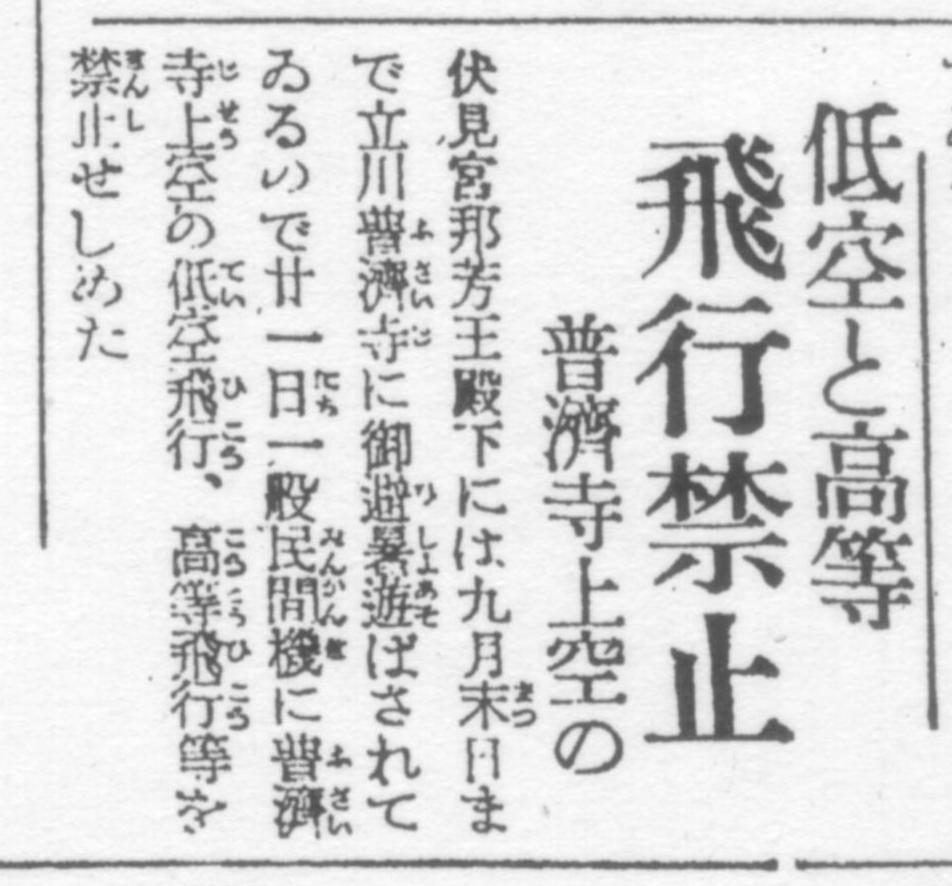 低空と高等
飛行禁止
普濟寺上空の
伏見宮邦芳王殿下には九月末日ま
で立川普濟寺に御避暑遊ばされて
ゐるので廿一日一般民間機に普濟
寺上空の低空飛行、高等飛行等を
禁止せしめた